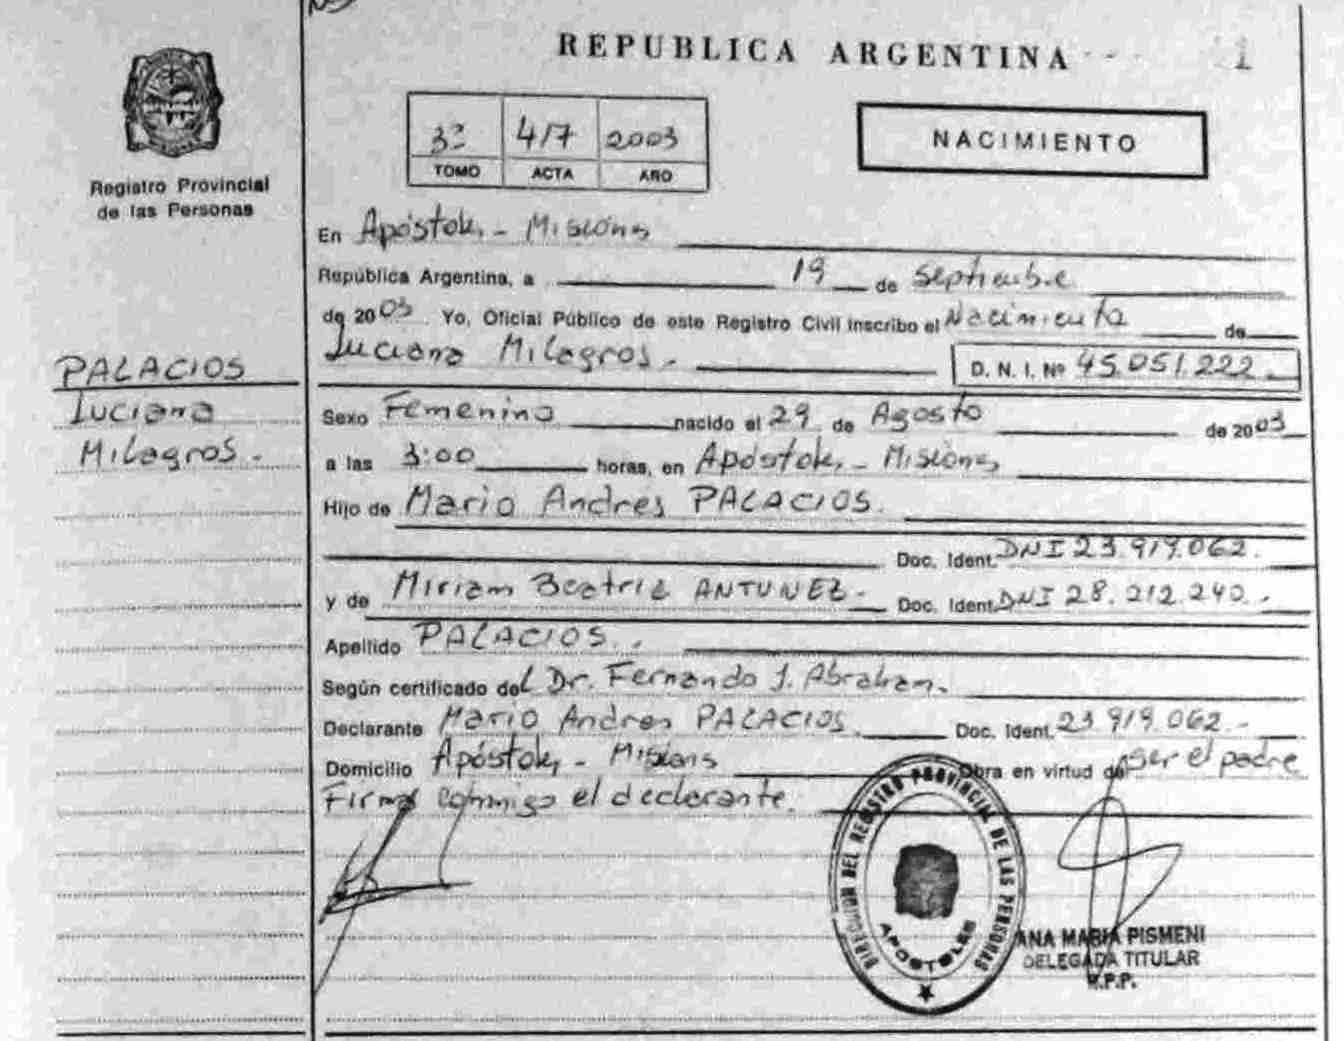 REPUBLICA ARGENTINA
Registro Provincial
de las Personas
3º 4/7 2003
TOMO ACTA AÑO
NACIMIENTO
En Apóstoles - Misiones
República Argentina, a 19 de Septiembre
de 2003 Yo, Oficial Público de este Registro Civil inscribo el Nacimiento de
Luciana Milagros.- D. N. I. Nº 45.051.222.
PALACIOS
Luciana
Milagros.-
Sexo Femenino nacido el 29 de Agosto de 2003
a las 3:00 horas, en Apóstoles - Misiones
Hijo de Mario Andres PALACIOS.
Doc. Ident. DNI 23.919.062.
y de Miriam Beatriz ANTUNEZ.- Doc. Ident. DNI 28.212.240.-
Apellido PALACIOS.
Según certificado del Dr. Fernando J. Abraham.
Declarante Mario Andres PALACIOS. Doc. Ident. 23.919.062.-
Domicilio Apóstoles - Misiones Obra en virtud de ser el padre
Firma conmigo el declarante.
DIRECCION DEL REGISTRO PROVINCIAL DE LAS PERSONAS
APOSTOLES
ANA MARIA PISMENI
DELEGADA TITULAR
R.P.P.